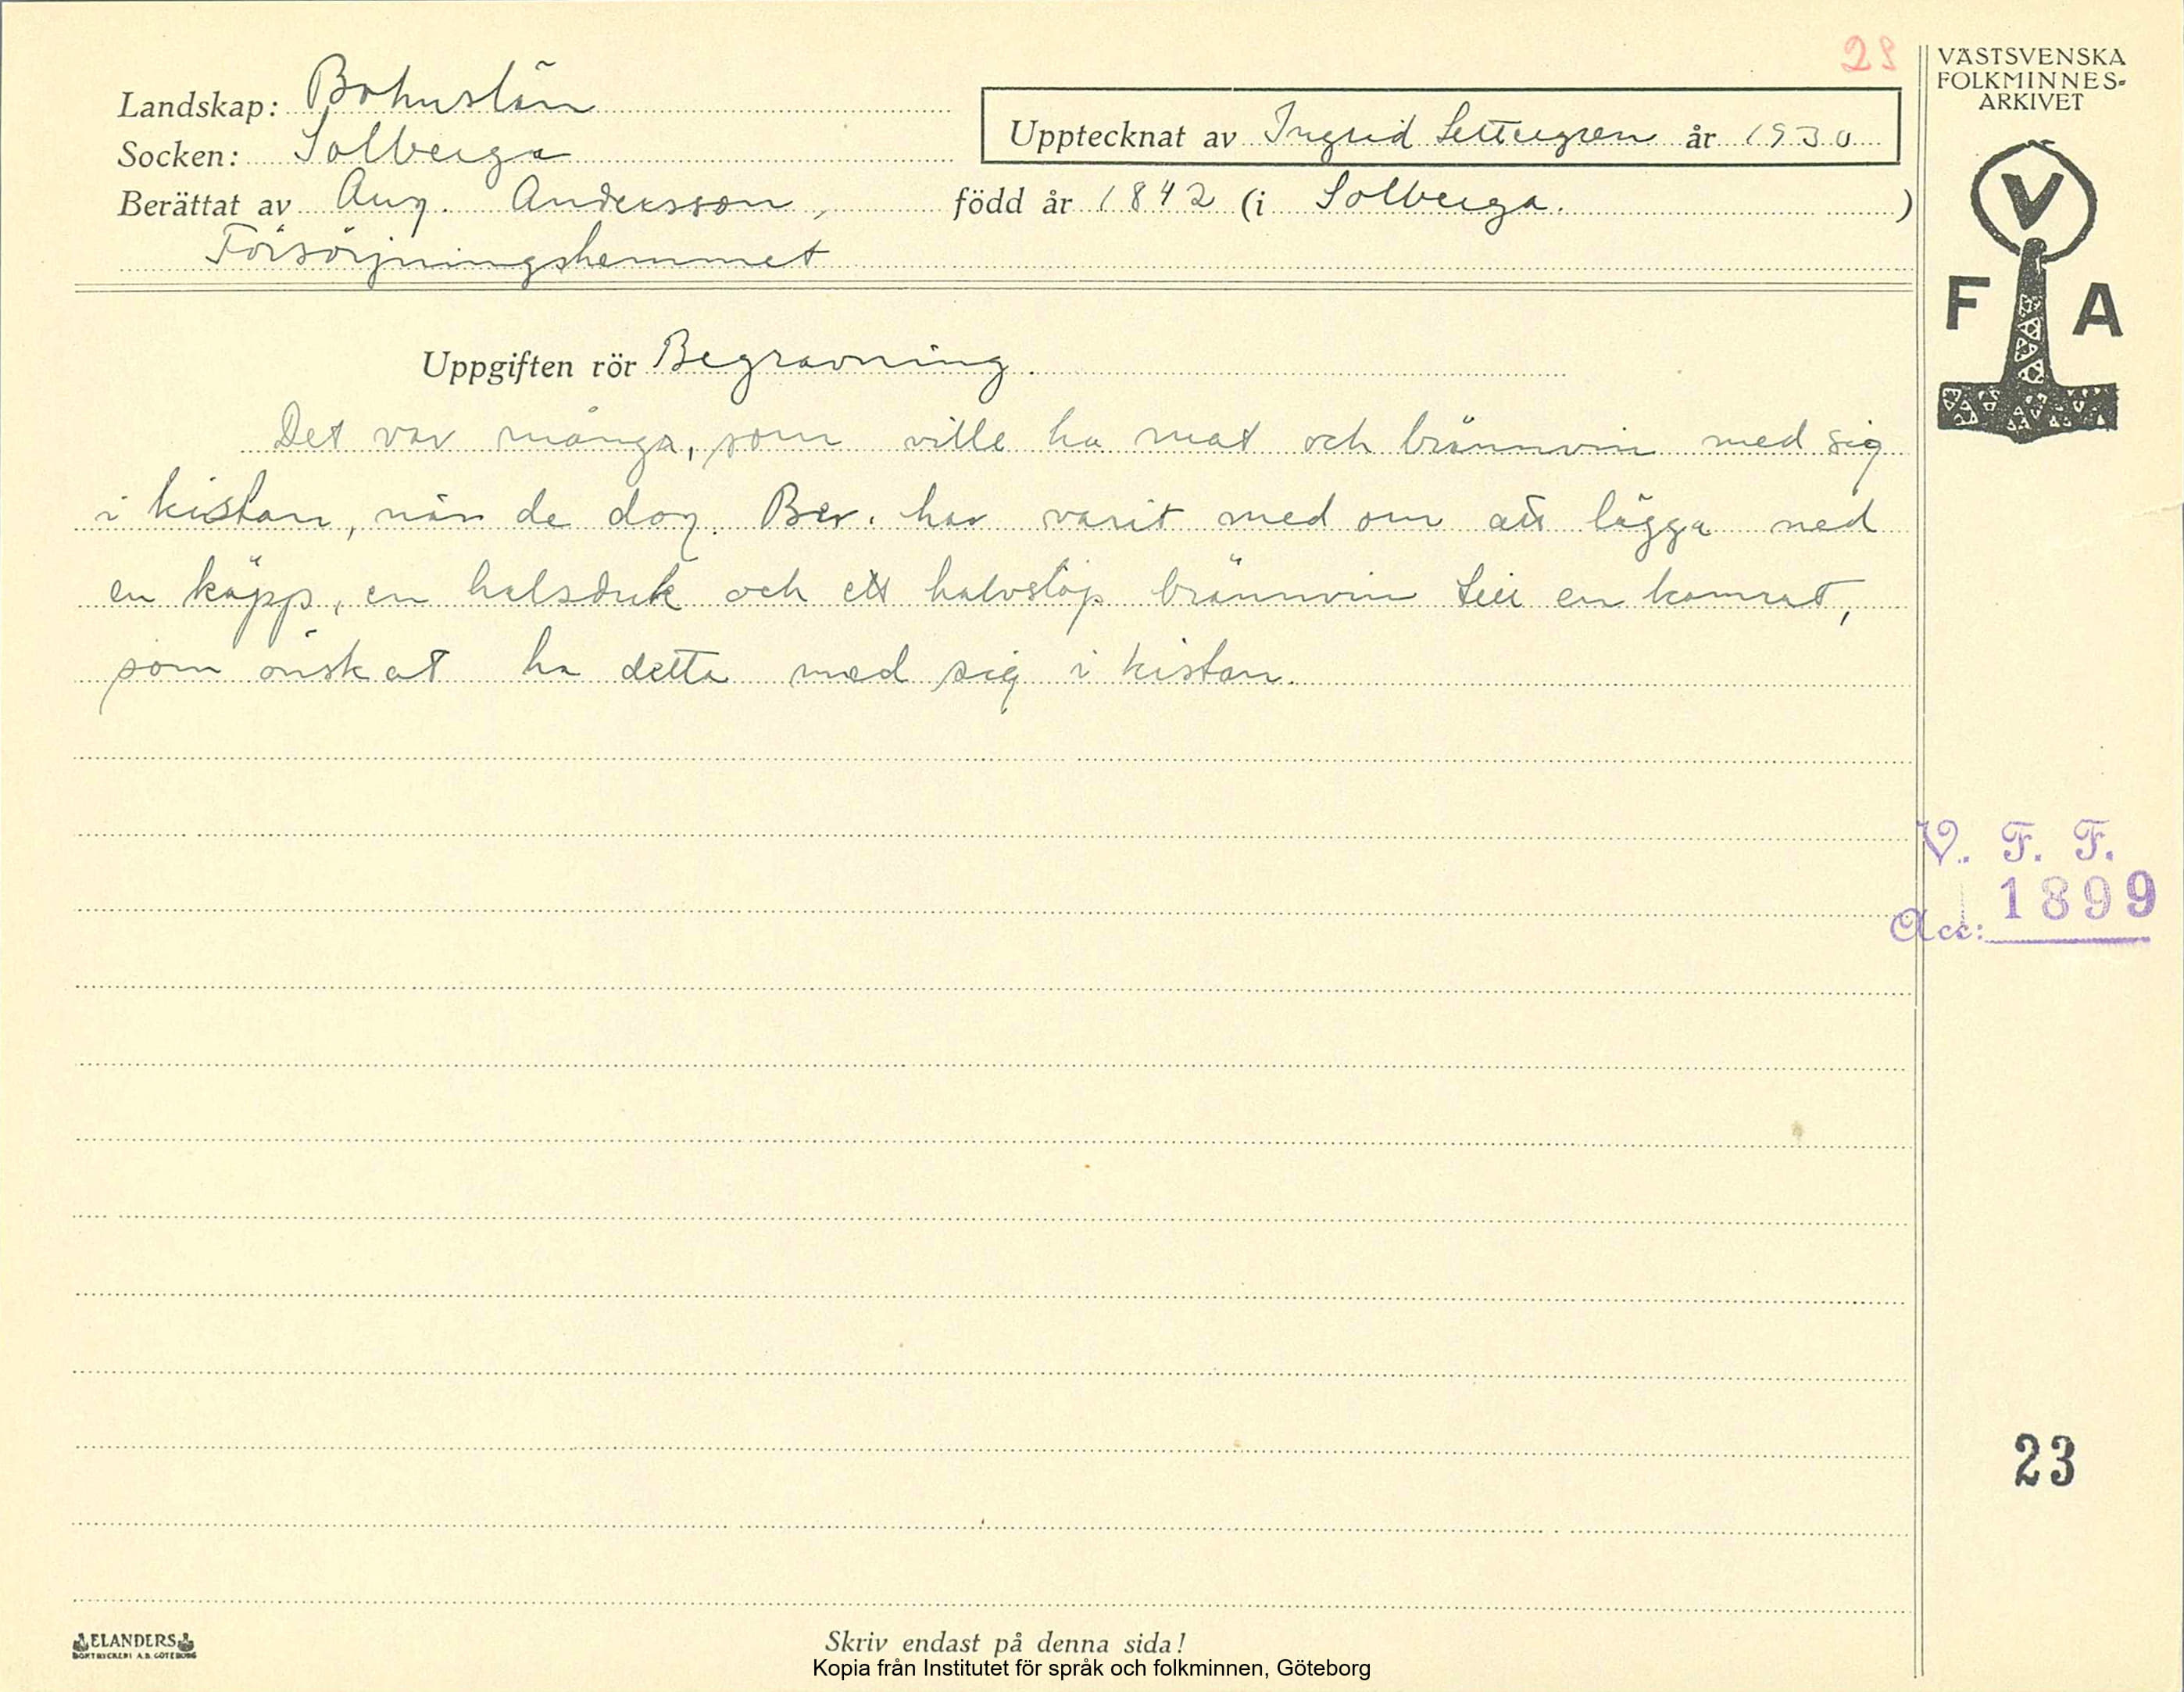 28
VÄSTSVENSKA
FOLKMINNES-
ARKIVET
Landskap: Bohuslän
Upptecknat av Ingrid Settergren år 1930
Socken: Solberga
Berättat av Aug. Andersson, född år 1842 (i Solberga. )
Försörjningshemmet
V
F A
Uppgiften rör Begravning.
Det var många, som ville ha mat och brännvin med sig
i kistan, när de dog. Ber. har varit med om att lägga ned
en käpp, en halsduk och ett halvstop brännvin till en kamrat,
som önskat ha detta med sig i kistan.
V. F. F.
Acc: 1899
23
ELANDERS
BOKTRYCKERI A.B. GÖTEBORG
Skriv endast på denna sida!
Kopia från Institutet för språk och folkminnen, Göteborg